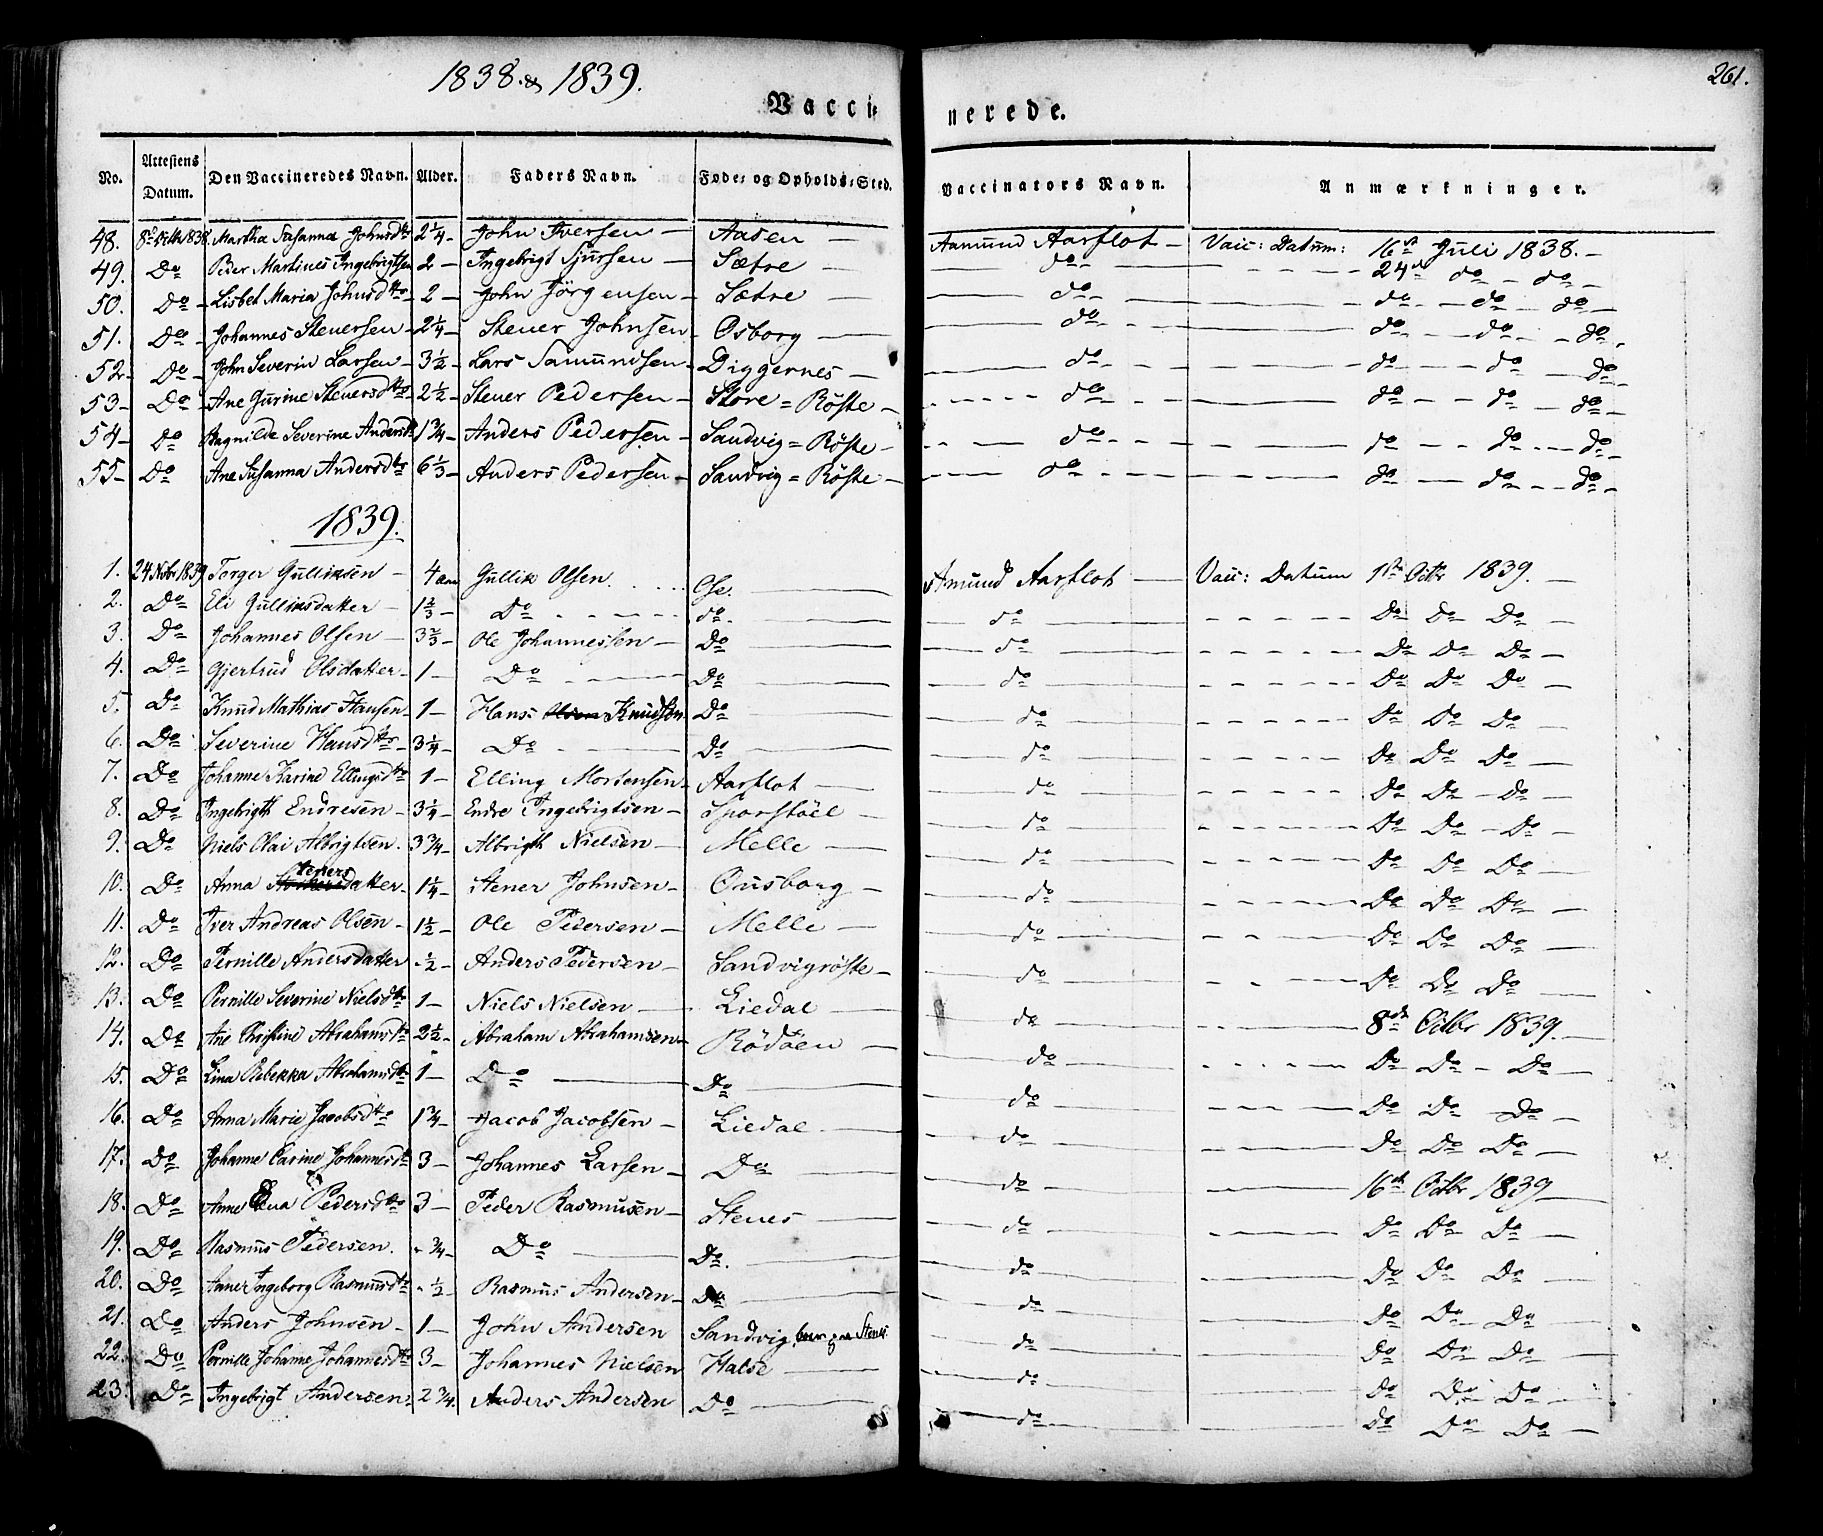 1838 & 1839.
261.
Vaccinerede.
No. Attestens Datum. Den Vaccineredes Navn. Alder. Faders Navn. Føde- og Opholds-Sted. Vaccinators Navn. Anmærkninger.
48. 8de Octbr 1838. Martha Susanna Johnsdtr 2 1/4 – John Iversen – Aasen – Aamund Aarflot – Vacc: Datum: 16de Juli 1838. –
49. Do Peder Martinus Ingebrigtsen 2 – Ingebrigt Sjursen – Sætre – do – 24de do – do –
50. Do – Lisbet Maria Johnsdtr – 2 – John Jörgensen – Sætre – do – do – do do –
51. Do – Johannes Steuersen – 2 1/4 – Steuer Johnsen – Osborg – do – do – do – do –
52 – Do – John Severin Larsen – 3 1/2 – Lars Samundsen – Diggernes – do – do – do do –
53 – Do – Ane Gurine Steuersdtr – 2 1/2 – Steuer Pedersen – Store = Röste – do – do – do – do –
54 – Do Ragnilde Severine Andersdtr 1 3/4 – Anders Pedersen – Sandvig = Röste – do – do – do – do –
55 – Do Ane Susanna Andersdtr 6 1/3 – Anders Pedersen – Sandvig = Röste – do – do – do – do –
1839.
1. 24 Nobr 1839 Torger Gulliksen – 4 aar Gullik Olsen. Ose. Amund Aarflot – Vacc: Datum 1ste Octbr 1839. –
2. Do Eli Gulliksdatter – 1 2/3 – Do do. do Do Do Do –
3. Do Johannes Olsen – 3 2/3 – Ole Johannessen – Do do Do Do Do –
4. Do Gjertrud Olsdatter – 1 – Do Do do Do Do Do –
5. Do Knud Mathias Hansen – 1 – Hans Knudsen Do do Do Do Do –
6. Do Severine Hansdtr – 3 1/4 – Do Do do Do Do Do –
7. Do Johanne Karine Ellingsdtr 1 – Elling Mortensen – Aarflot – do Do Do – Do –
8. Do Ingebrigth Endresen – 3 1/4 – Endre Ingebrigtsen – Sporstöel – do Do Do – Do –
9. Do Niels Olai Albrigtsen. 3 3/4 – Albrigth Nielsen – Melle – do Do Do Do –
10. Do Anna Stenersdatter – 1 1/4 – Stener Johnsen – Ousborg – do Do Do Do –
11. Do Iver Andreas Olsen – 1 1/2 – Ole Pedersen – Melle – do Do Do Do –
12. Do Pernille Andersdatter – 1/2 – Anders Pedersen – Sandvigröste – do Do Do Do –
13. Do Pernille Severine Nielsdtr 1 – Niels Nielsen – Liedal – do 8de Octbr 1839. –
14. Do Ane Christine Abrahamsdtr 2 1/2 – Abraham Abrahamsen – Rödöen – do Do Do – Do –
15. Do Lina Rebekka Abrahamsdtr 1 – Do – Do do Do Do Do –
16. Do Anna Marie Jacobsdtr 1 3/4 – Jacob Jacobsen – Liedal – do Do Do Do –
17. Do Johanne Carine Johannesdtr 3 – Johannes Larsen – Do do 16de Octbr 1839 –
18. Do Anne Pedersdtr 3 – Peder Rasmusen – Stenes – do Do Do Do –
19. Do Rasmus Pedersen. – 3/4 – Do – Do. do Do Do Do –
20. Do Ingeborg Rasmusdtr – 1/2 – Rasmus Andersen – Do do Do Do Do –
21. Do Anders Johnsen – 1 – John Andersen Sandvig, Stenes. do Do Do Do –
22. Do Pernille Johanne Johannesdtr 3 – Johannes Nielsen Halse – do Do Do Do –
23. Do – Ingebrigt Andersen – 2 3/4. Anders Andersen Do – do Do Do Do –